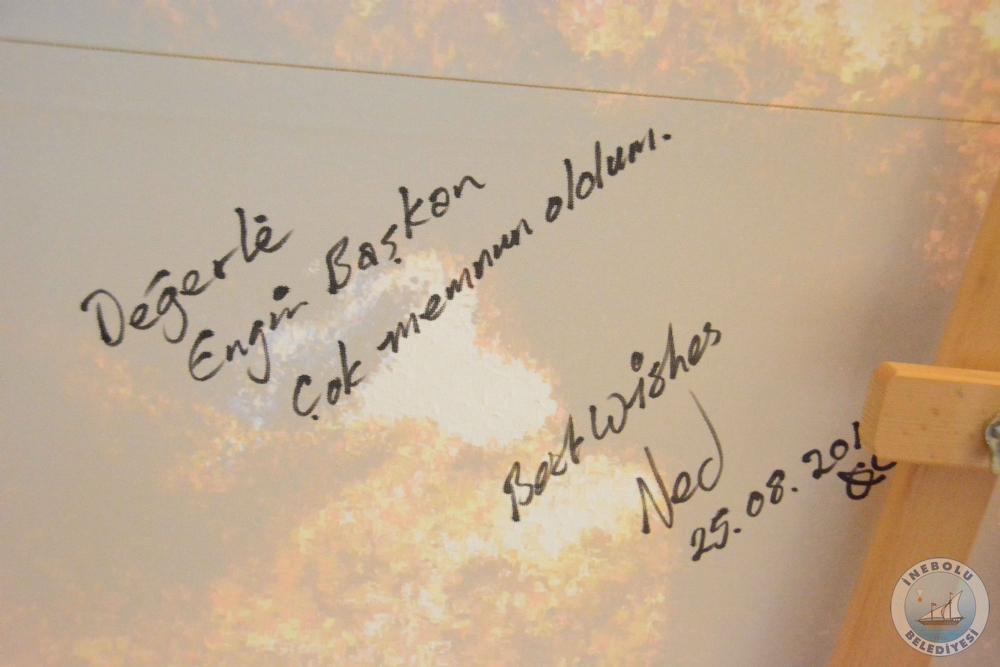 Değerle
Engin Başkan
Çok memnun oldum.
Best Wishes
Ned
25.08.201
İNEBOLU
BELEDİYESİ